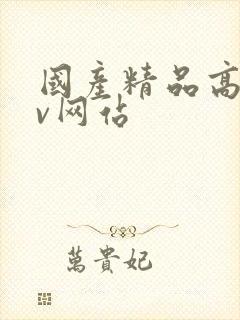 國產精品高
v网站
萬貴妃